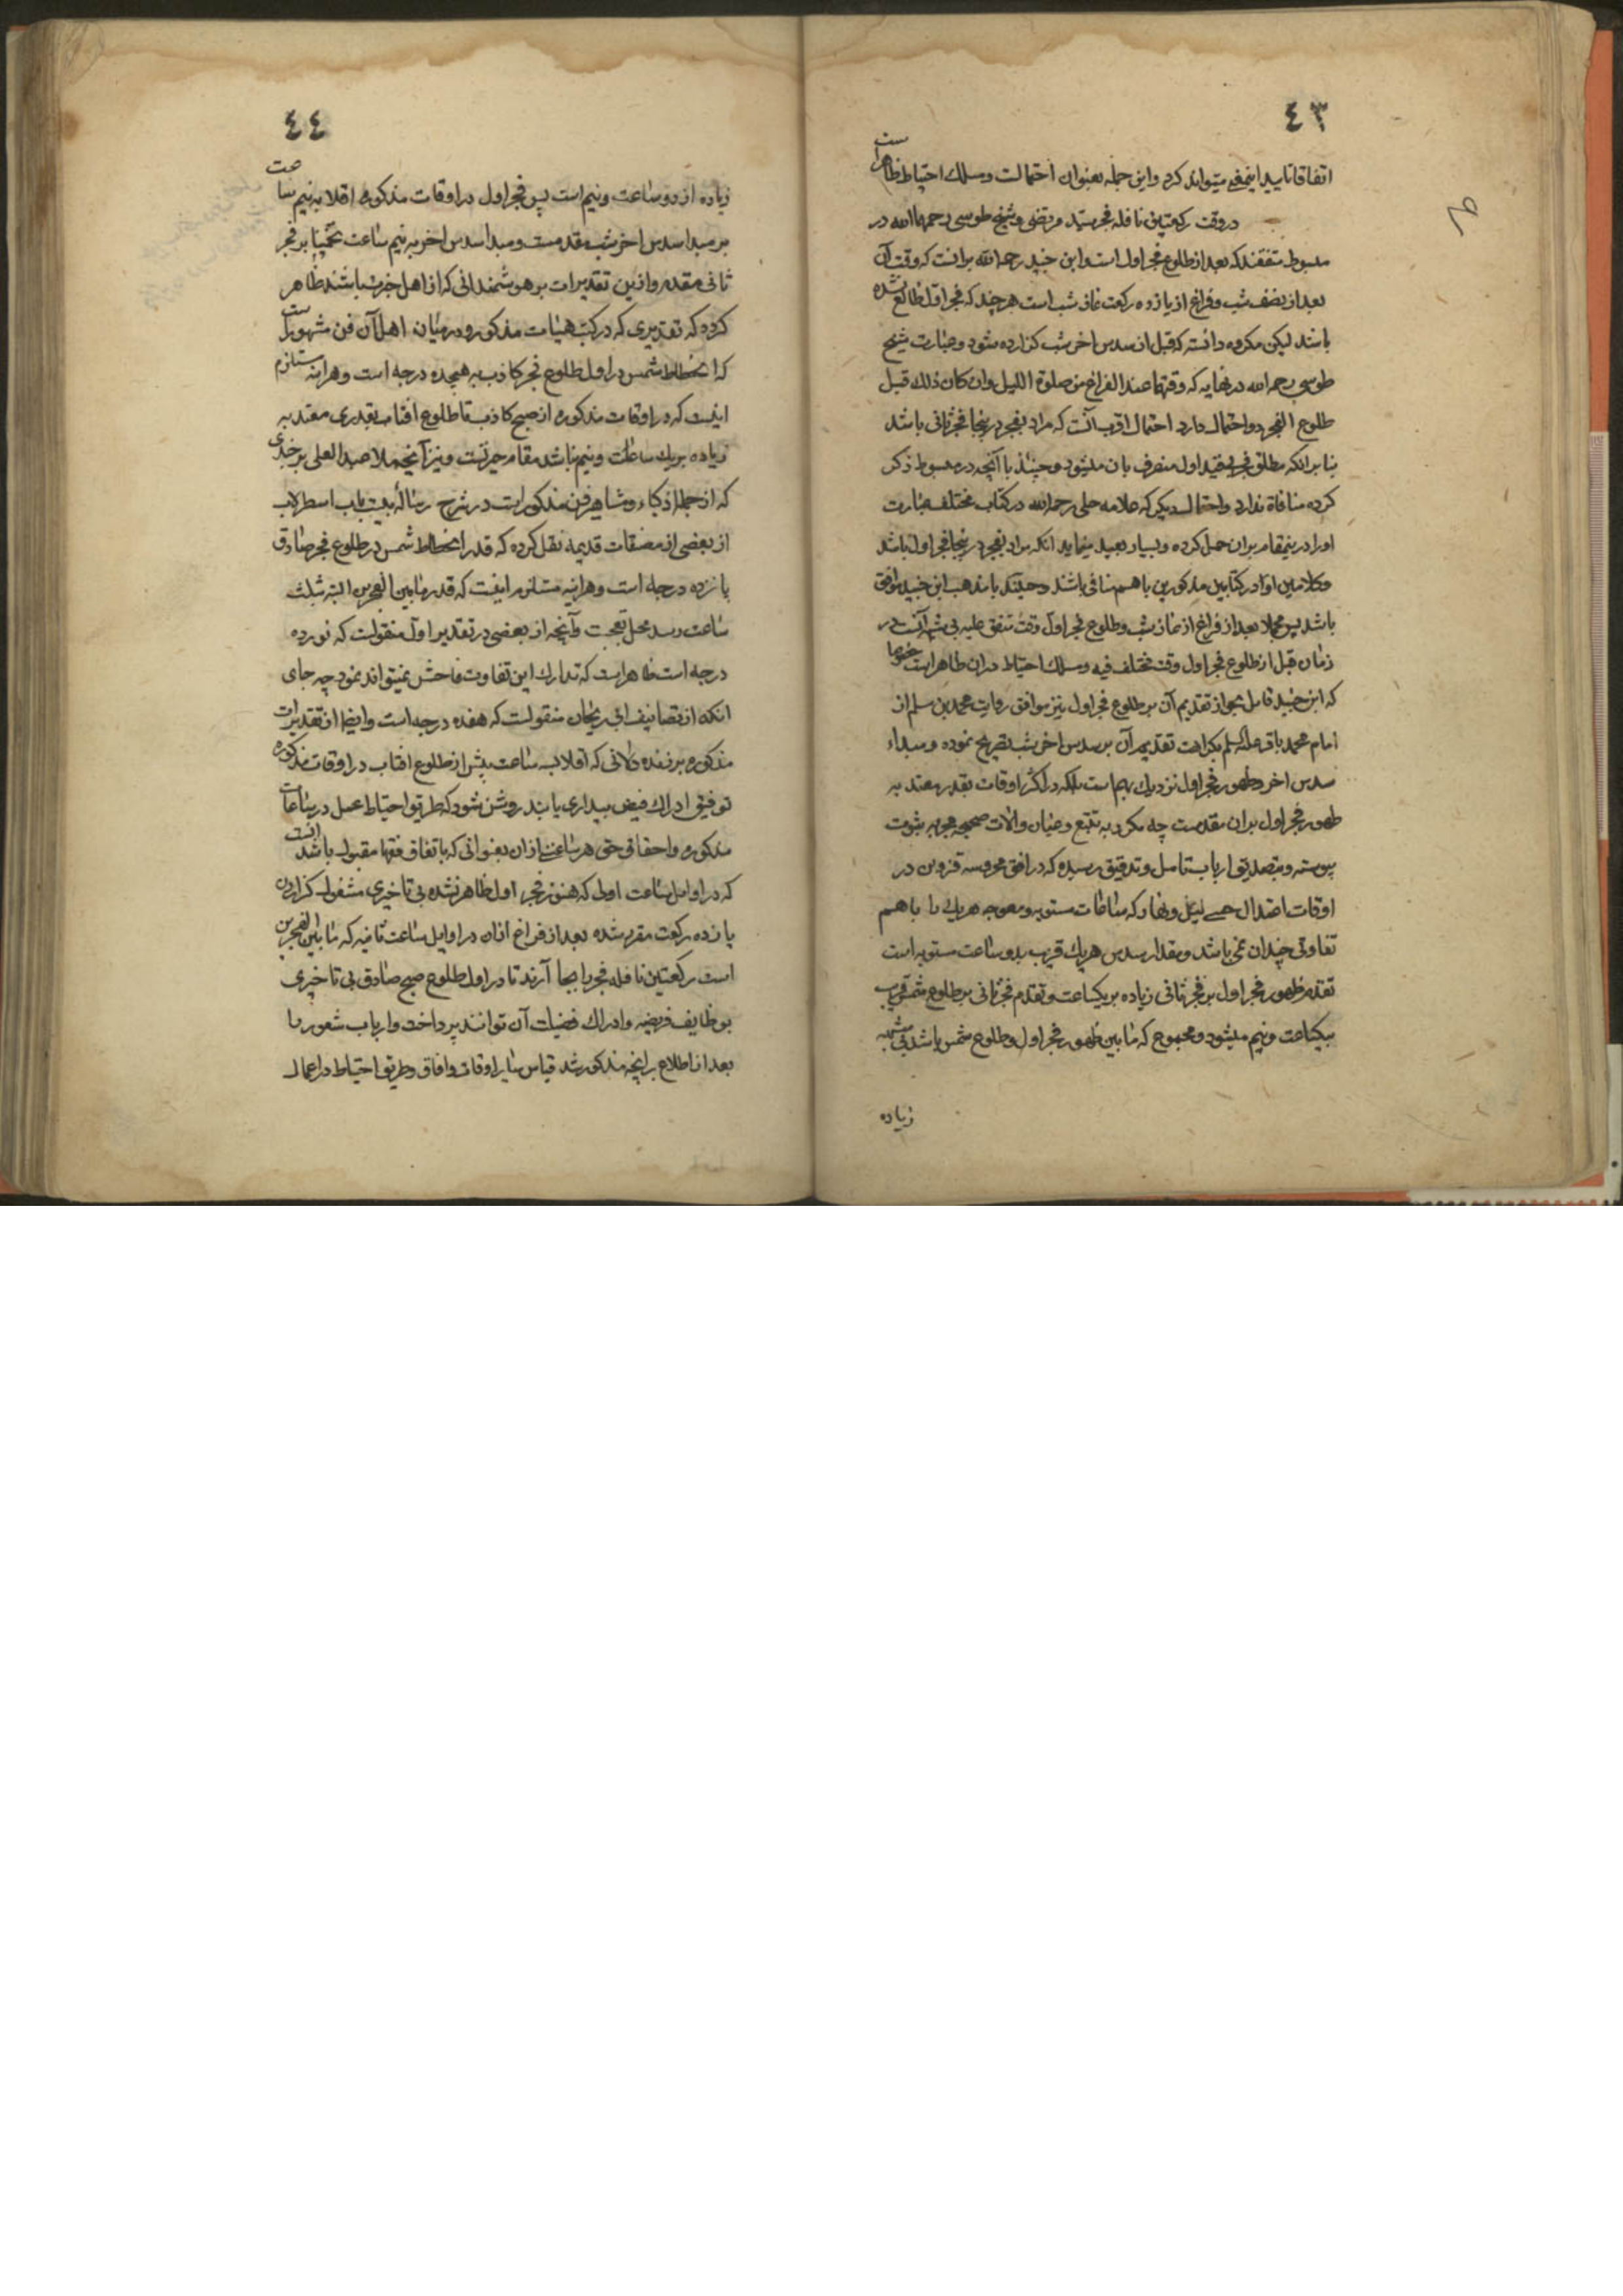 ٤٣
اتفاقا تاييد اينمعنى ميتواند كرد و اين جمله بعنوان احتمالست و مسلك احتياط ظاهر است
در وقت ركعتين نافله فجر سيد مرتضى و شيخ طوسى رحمهما الله در
مبسوط متفقند كه بعد از طلوع فجر اول است و ابن جنيد رحمه الله برانست كه وقت آن
بعد از نصف شب و فراغ از يازده ركعت نماز شب است هر چند كه فجر اول طالع نشده
باشد ليكن مكروه دانسته كه قبل از سدس اخر شب گزارده شود و عبارت شيخ
طوسى رحمه الله در نهايه كه وقتهما عند الفراغ من صلوة الليل و ان كان ذلك قبل
طلوع الفجر دو احتمال دارد احتمال اقرب آنست كه مراد بفجر در ينجا فجر ثانى باشد
بنا بر انكه مطلق فجر بيقيد اول منصرف بان ميشود و حينئذ با آنچه در مبسوط ذكر
كرده منافاة ندارد و احتمال ديگر كه علامه حلى رحمه الله در كتاب مختلف عبارت
او را در ينمقام بران حمل كرده و بسيار بعيد مينمايد انكه مراد بفجر در ينجا فجر اول باشد
و كلامين او در كتابين مذكورين با هم منافى باشند و حينئذ با مذهب ابن جنيد موافق
باشد پس مجملا بعد از فراغ از نماز شب و طلوع فجر اول وقت متفق عليه بى شبهه آنست در
زمان قبل از طلوع فجر اول وقت مختلف فيه و مسلك احتياط دران ظاهر است خصوصا
كه ابن جنيد قايل بجواز تقديم آن بر طلوع فجر اول نيز موافق روايت محمد بن مسلم از
امام محمد باقر عليه السلم بكراهت تقديم آن بر سدس اخر شب تصريح نموده و مبداء
سدس اخر و ظهور فجر اول نزديك بهم است بلكه در اكثر اوقات بقدر معتد به
ظهور فجر اول بران مقدمست چه مكرر به تتبع و عيان و الات صحيحه مجربه بثبوت
پيوسته و بتصديق ارباب تامل و تدقيق رسيده كه در افق محروسه قزوين در
اوقات اعتدال حسى ليل و نهار كه ساعات مستويه و معوجه هر يك را با هم
تفاوتى چندان نمى باشد و مقدار سدس هر يك قريب بدو ساعت مستويه است
تقدم ظهور فجر اول بر فجر ثانى زياده بر يكساعت و تقدم فجر ثانى بر طلوع شمس قريب
بيكساعت و نيم ميشود و مجموع كه ما بين ظهور فجر اول و طلوع شمس باشد بى شبهه
زياده
٤٤
زياده از دو ساعت و نيم است پس فجر اول در اوقات مذكوره اقلا به نيم ساعت
بر مبدا سدس اخر شب مقدمست و مبدا سدس اخر به نيم ساعت تخمينا بر فجر
ثانى مقدم و ازين تقديرات بر هوشمندانى كه از اهل خبرت باشند ظاهر
گردد كه تقديرى كه در كتب هيئات مذكور و در ميان اهل آن فن مشهور است
كه انحطاط شمس در اول طلوع فجر كاذب به هيجده درجه است و هر اينه مستلزم
اينست كه در اوقات مذكوره از صبح كاذب تا طلوع افتاب بقدرى معتد به
زياده بر يك ساعت و نيم نباشد مقام حيرتست و نيز آنچه ملا عبد العلى برجندى
كه از جمله اذكياء و مشاهير فن مذكور است در شرح رساله بيست باب اسطرلاب
از بعضى از مصنفات قديمه نقل كرده كه قدر انحطاط شمس در طلوع فجر صادق
پانزده درجه است و هر اينه مستلزم اينست كه قدر ما بين الفجرين البته بثلث
ساعت رسد محل تعجبست و آنچه از بعضى در تقدير اول منقولست كه نوزده
درجه است ظاهر است كه تدارك اين تفاوت فاحش نميتواند نمود چه جاى
انكه از تصانيف ابى ريحان منقولست كه هفده درجه است و ايضا از تقديرات
مذكوره بر زنده دلانى كه اقلا بسه ساعت پيش از طلوع افتاب در اوقات مذكوره
توفيق ادراك فيض بيدارى يابند روشن شود كه طريق احتياط عمل در ساعات
مذكوره و احقاق حق هر ساعتى ازان بعنوانى كه باتفاق فقها مقبول باشد انست
كه در اوايل ساعت اولى كه هنوز فجر اول ظاهر نشده بى تاخيرى مشغول گزاردن
يازده ركعت مقرر شده بعد از فراغ ازان در اوايل ساعت ثانيه كه ما بين الفجرين
است ركعتين نافله فجر را بجا آرند تا در اول طلوع صبح صادق بى تاخيرى
بوظايف فريضه و ادراك فضيلت آن توانند پرداخت و ارباب شعور را
بعد از اطلاع بر آنچه مذكور شد قياس ساير اوقات و افاق و طريق احتياط در اعمال